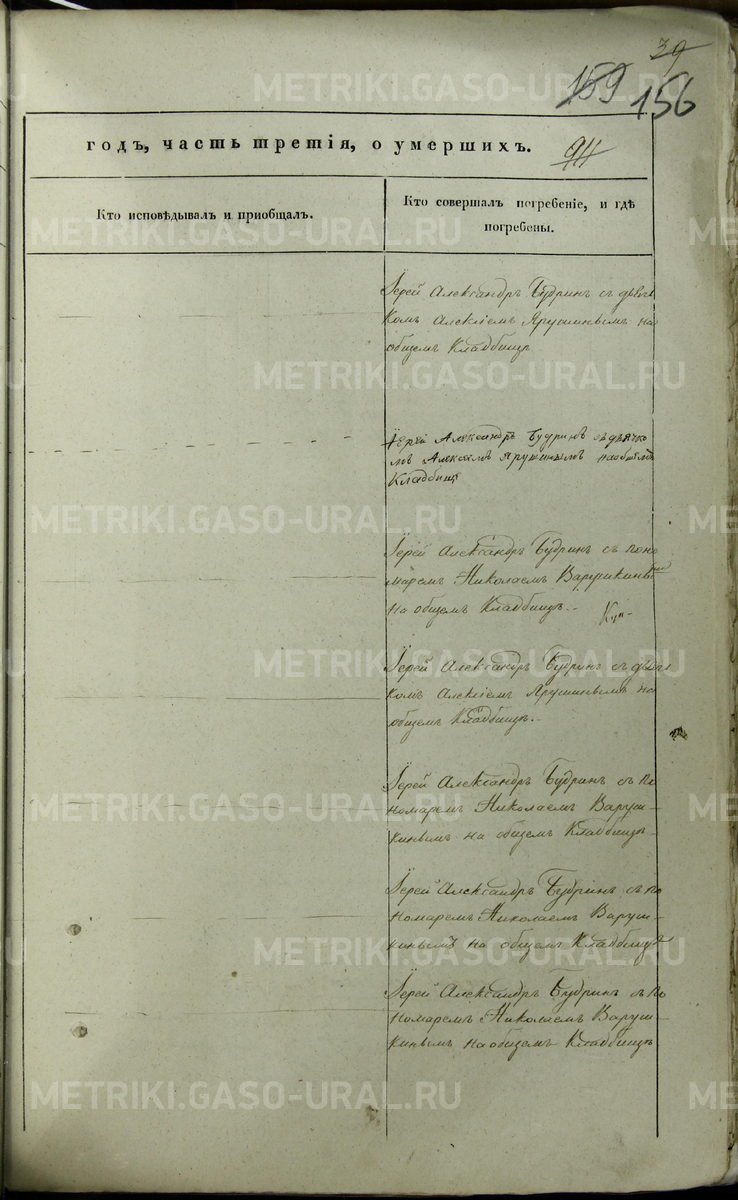 39
159 156
годъ, часть третія, о умершихъ. 94
Кто исповѣдывалъ и приобщалъ.
Кто совершалъ погребеніе, и гдѣ
погребены.
Іерей Александръ Будринъ съ дьяч
комъ Алексіемъ Ярушинымъ на
общемъ Кладбищѣ
Іерей Александръ Будринъ съ дьячко
мъ Алексіемъ Ярушинымъ на общемъ
Кладбищѣ
Іерей Александръ Будринъ съ поно
маремъ Николаемъ Варушкинымъ
на общемъ Кладбищѣ.
Іерей Александръ Будринъ съ дьяч
комъ Алексіемъ Ярушинымъ на
общемъ Кладбищѣ.
Іерей Александръ Будринъ съ по
номаремъ Николаемъ Варуш
кинымъ на общемъ Кладбищѣ
Іерей Александръ Будринъ съ по
номаремъ Николаемъ Варуш
кинымъ на общемъ Кладбищѣ
Іерей Александръ Будринъ съ по
номаремъ Николаемъ Варуш
кинымъ на общемъ Кладбищѣ
METRIKI.GASO-URAL.RU